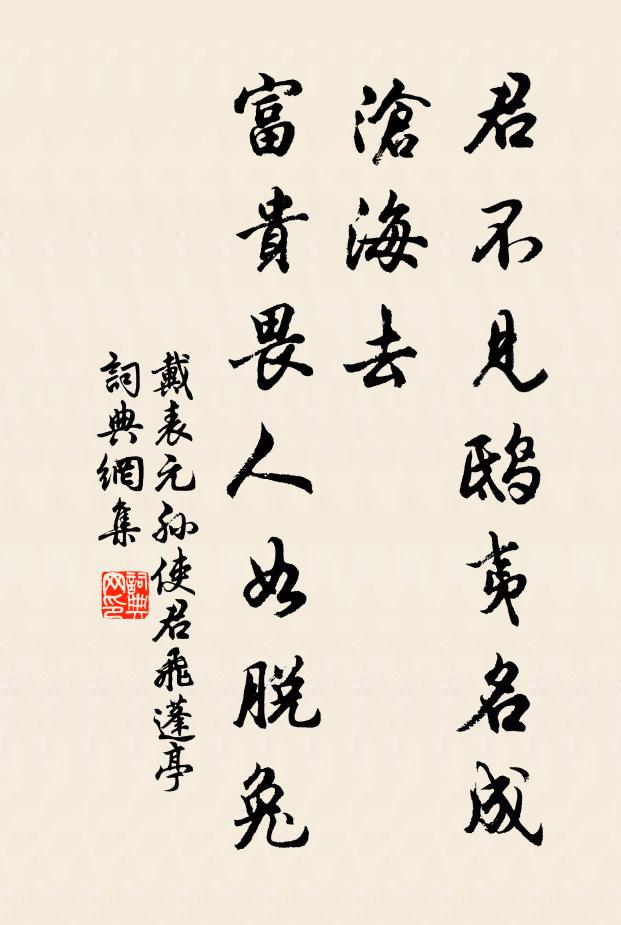 君不見鴟夷名成
滄海去
富貴畏人如脫兔
戴表元孫使君飛蓬亭
詞典網集
詞典网印